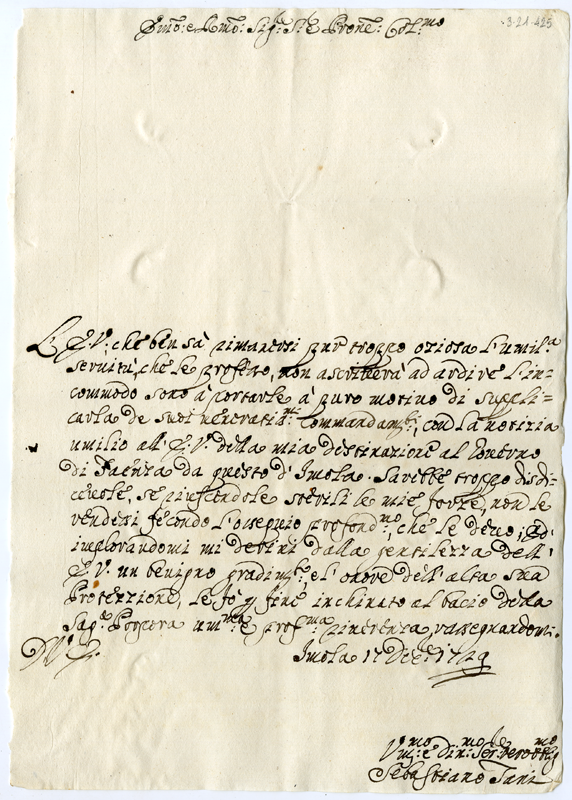 3-21-425
Em̃o: e Rm̃o: Sig.r Sig.r e Prone: Col:mo
L'E.V: che ben sà rimanersi pur troppo oziosa l'umil.a
servitù, che le professo, non ascriverà ad ardire l'in=
commodo sono à portarle à puro motivo di suppli=
carla de suoi veneratis.mi commandam.ti, con la notizia
umilio all'E.V. della mia destinazione al Governo
di Faenza da questo d'Imola. Sarebbe troppo disdi=
cevole, se riuscendole sterili le mie forze, non le
rendessi fecondo l'ossequio profond.mo, che le devo; ed
implorandomi mi derivi dalla gentilezza dell'
E.V. un benigno gradim.to, e l'onore dell'alta sua
Protezzione, le fò per fine inchinato al bacio della
Sag.a Porpora um.ma e prof.ma riverenza, rassegnandomi.
Imola 17 Dec.e 1729
Um.mo e
Sebastiano Tani